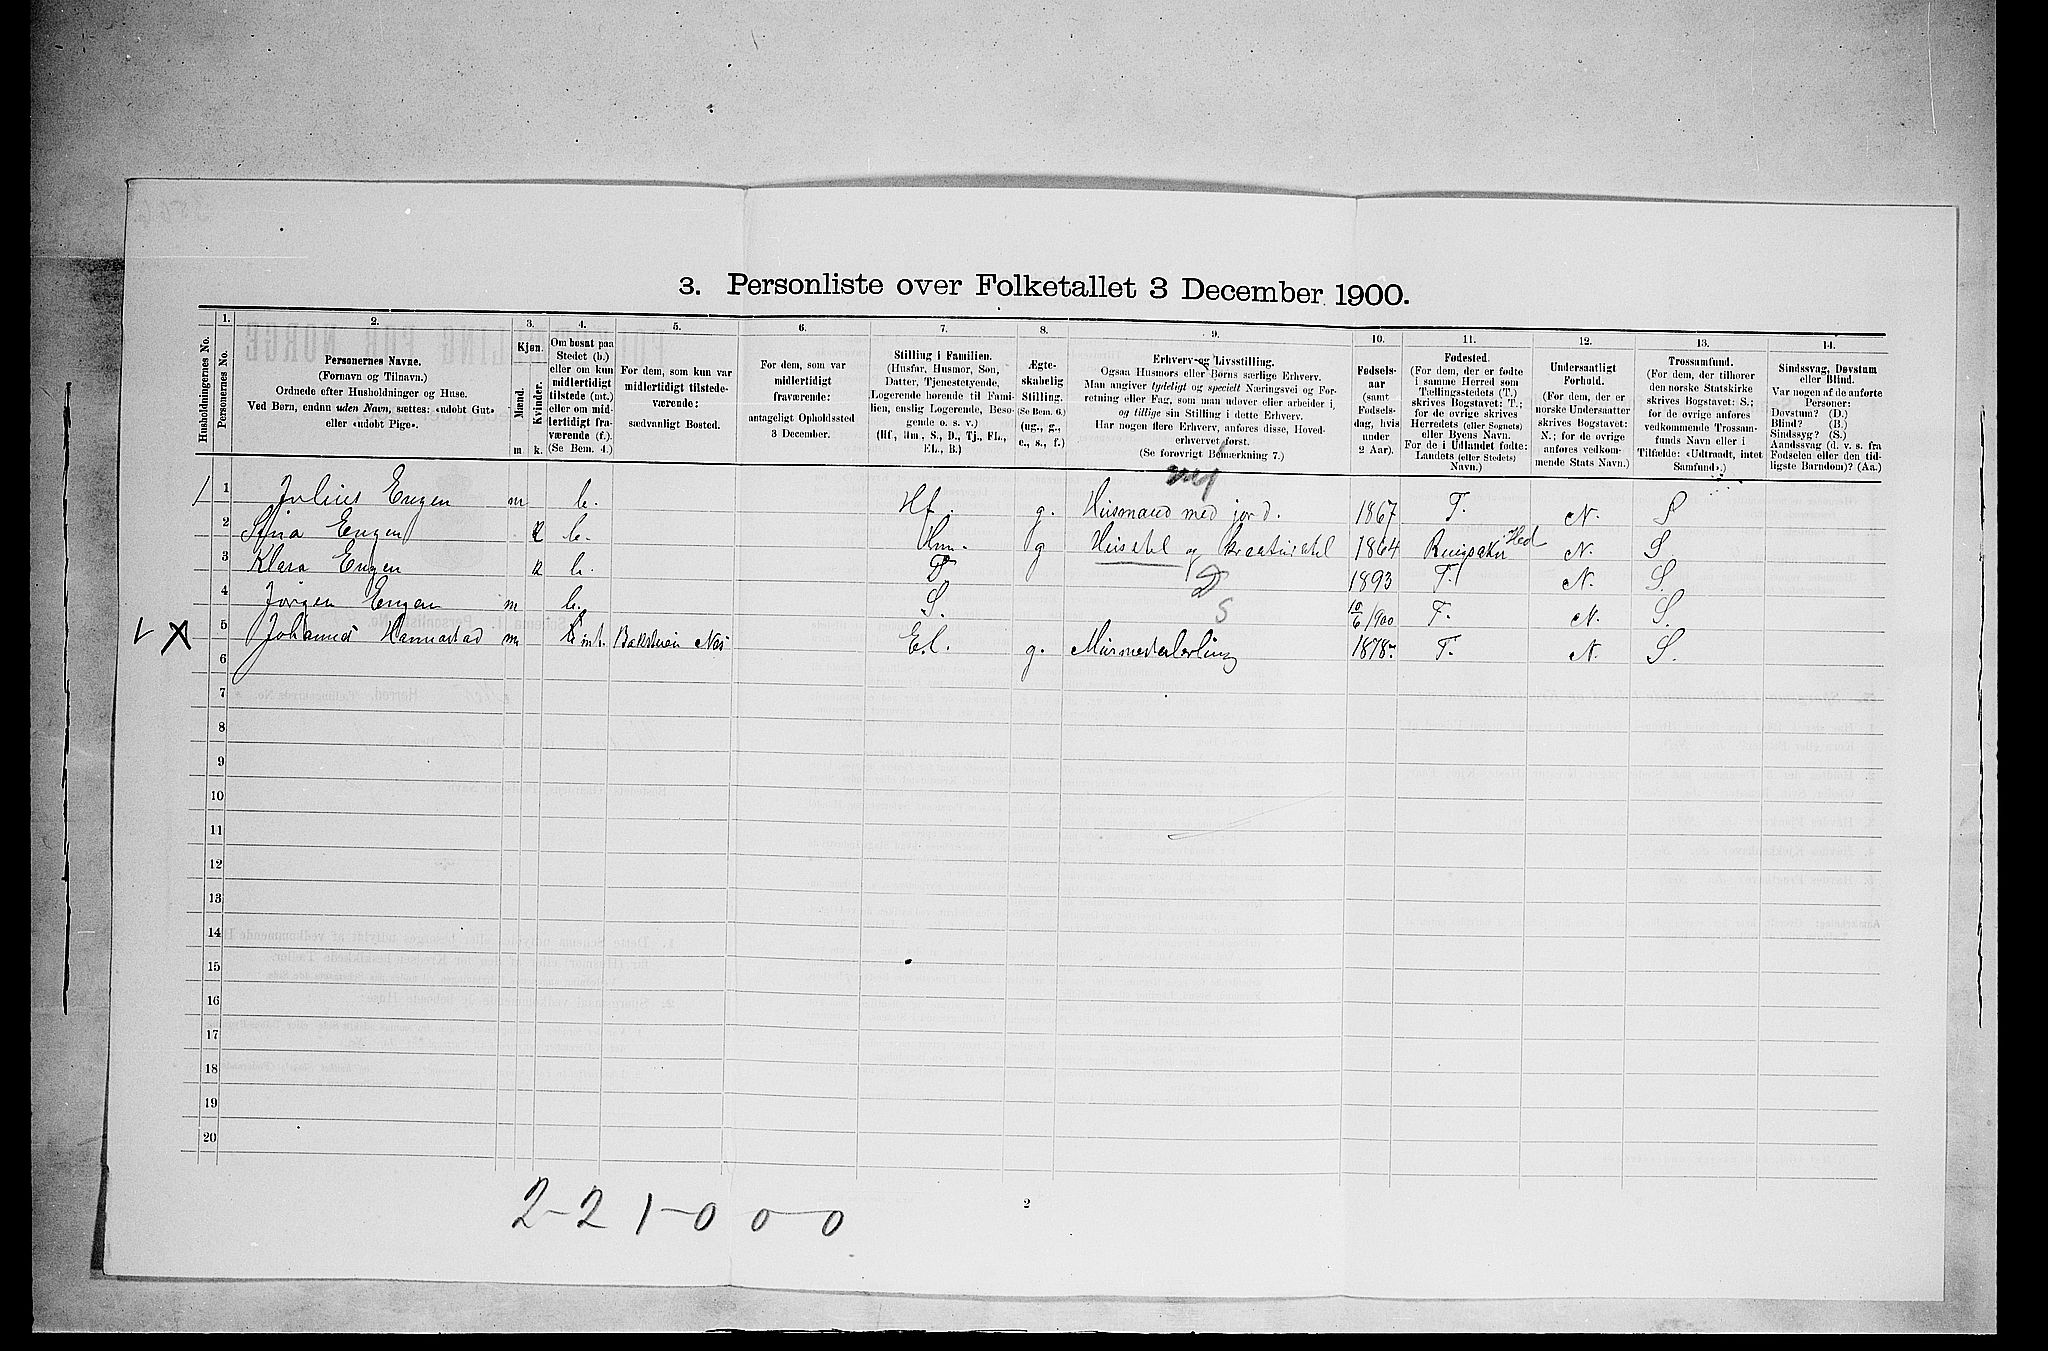 3. Personliste over Folketallet 3 December 1900.
Husholdningernes No.
1.
Personernes No.
2.
Personernes Navne.
(Fornavn og Tilnavn.)
Ordnede efter Husholdninger og Huse.
Ved Børn, endnu uden Navn, sættes: «udobt Gut»
eller «udobt Pige».
3.
Kjøn.
Mænd.
Kvinder.
m
k.
4.
Om bosat paa
Stedet (b.)
eller om kun
midlertidigt
tilstede (mt.)
eller om mid-
lertidigt fra-
værende (f.).
(Se Bem. 4.)
5.
For dem, som kun var
midlertidigt tilstede-
værende:
sædvanligt Bosted.
6.
For dem, som var
midlertidigt
fraværende:
antageligt Opholdssted
3 December.
7.
Stilling i Familien.
(Husfar, Husmor, Søn,
Datter, Tjenestetyende,
Logerende hørende til Fami-
lien, enslig Logerende, Beso-
gende o. s. v.)
(Hf., Hm., S., D., Tj., FL.,
EL., B.)
8.
Ægte-
skabelig
Stilling.
(Se Bem. 6.)
(ug., g.,
e., s., f.)
9.
Erhverv og Livsstilling.
Ogsaa Husmors eller Børns særlige Erhverv.
Man angiver tydeligt og specielt Næringsvei og For-
retning eller Fag, som man udover eller arbeider i,
og tillige sin Stilling i dette Erhverv.
Har nogen flere Erhverv, anføres disse, Hoved-
erhvervet først.
(Se forøvrigt Bemærkning 7.)
10.
Fødsels-
aar
(samt
Fødsels-
dag, hvis
under
2 Aar).
11.
Fødested.
(For dem, der er fødte
i samme Herred som
Tællingsstedets (T.)
skrives Bogstavet: T.;
for de øvrige skrives
Herredets (eller Sognets)
eller Byens Navn.
For de i Udlandet fødte:
Landets (eller Stedets)
Navn.)
12.
Undersaatligt
Forhold.
(For dem, der er
norske Undersaatter
skrives Bogstavet:
N.; for de øvrige
anføres vedkom-
mende Stats Navn.)
13.
Trossamfund.
(For dem, der tilhører
den norske Statskirke
skrives Bogstavet: S.;
for de øvrige anføres
vedkommende Trossam-
funds Navn eller i
Tilfælde: «Udtraadt, intet
Samfund».)
14.
Sindssvag, Døvstum
eller Blind.
Var nogen af de anførte
Personer:
Døvstum? (D.)
Blind? (B.)
Sindssyg? (S.)
Aandssvag (d. v. s. fra
Fødselen eller den tid-
ligste Barndom)? (Aa.)
1 Julius Engen m b. Hf. g. Husmand med jord. 1867 T. N. S
2 Stina Engen k b. Hm. g Husstel og kreaturstel 1864 Ringsaker Hed N. S.
3 Klara Engen k b. D 1893 T. N. S.
4 Jørgen Engen m b. S. S 10/6 1900 T. N. S.
5 Johannes m mt. Nes E.l. g. Murmesterlerling 1878 T. N. S.
6
7
8
9
10
11
12
13
14
15
16
17
18
19
20
2-2 1-0 0-0
2